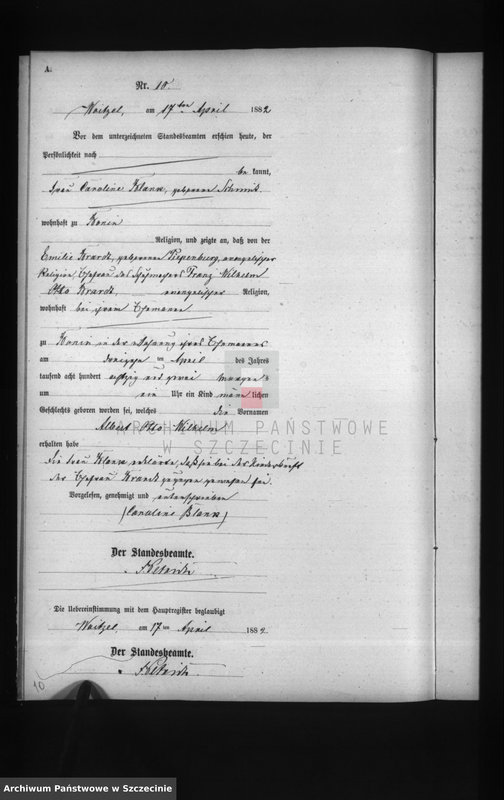 A.
Nr. 10.
Waitzel, am 17ten April 1882
Vor dem unterzeichneten Standesbeamten erschien heute, der
Persönlichkeit nach
be kannt,
Frau Caroline Klank, geborene Schmidt
wohnhaft zu Konin
Religion, und zeigte an, daß von der
Emilie Krardt, geborenen Piepenburg, evangelischer
Religion, Ehefrau des Franz Wilhelm
Otto Krardt, evangelischer Religion,
wohnhaft bei ihrem Ehemanne
zu Konin in der Wohnung ihres Ehemannes
am April des Jahres
tausend acht hundert achtzig und zwei Morgens
um ein Uhr ein Kind männ lichen
Geschlechts geboren worden sei, welches die Vornamen
Albert Otto Wilhelm
erhalten habe
die Frau Klank erklärte, daß sie bei der Niederkunft
der Ehefrau Krardt zugegen gewesen sei.
Vorgelesen, genehmigt und unterschrieben
(Caroline Blank)
Der Standesbeamte.
Die Uebereinstimmung mit dem Hauptregister beglaubigt
Waitzel, am 17ten April 1882.
Der Standesbeamte.
10
ARCHIWUM PAŃSTWOWE
W SZCZECINIE
Archiwum Państwowe w Szczecinie